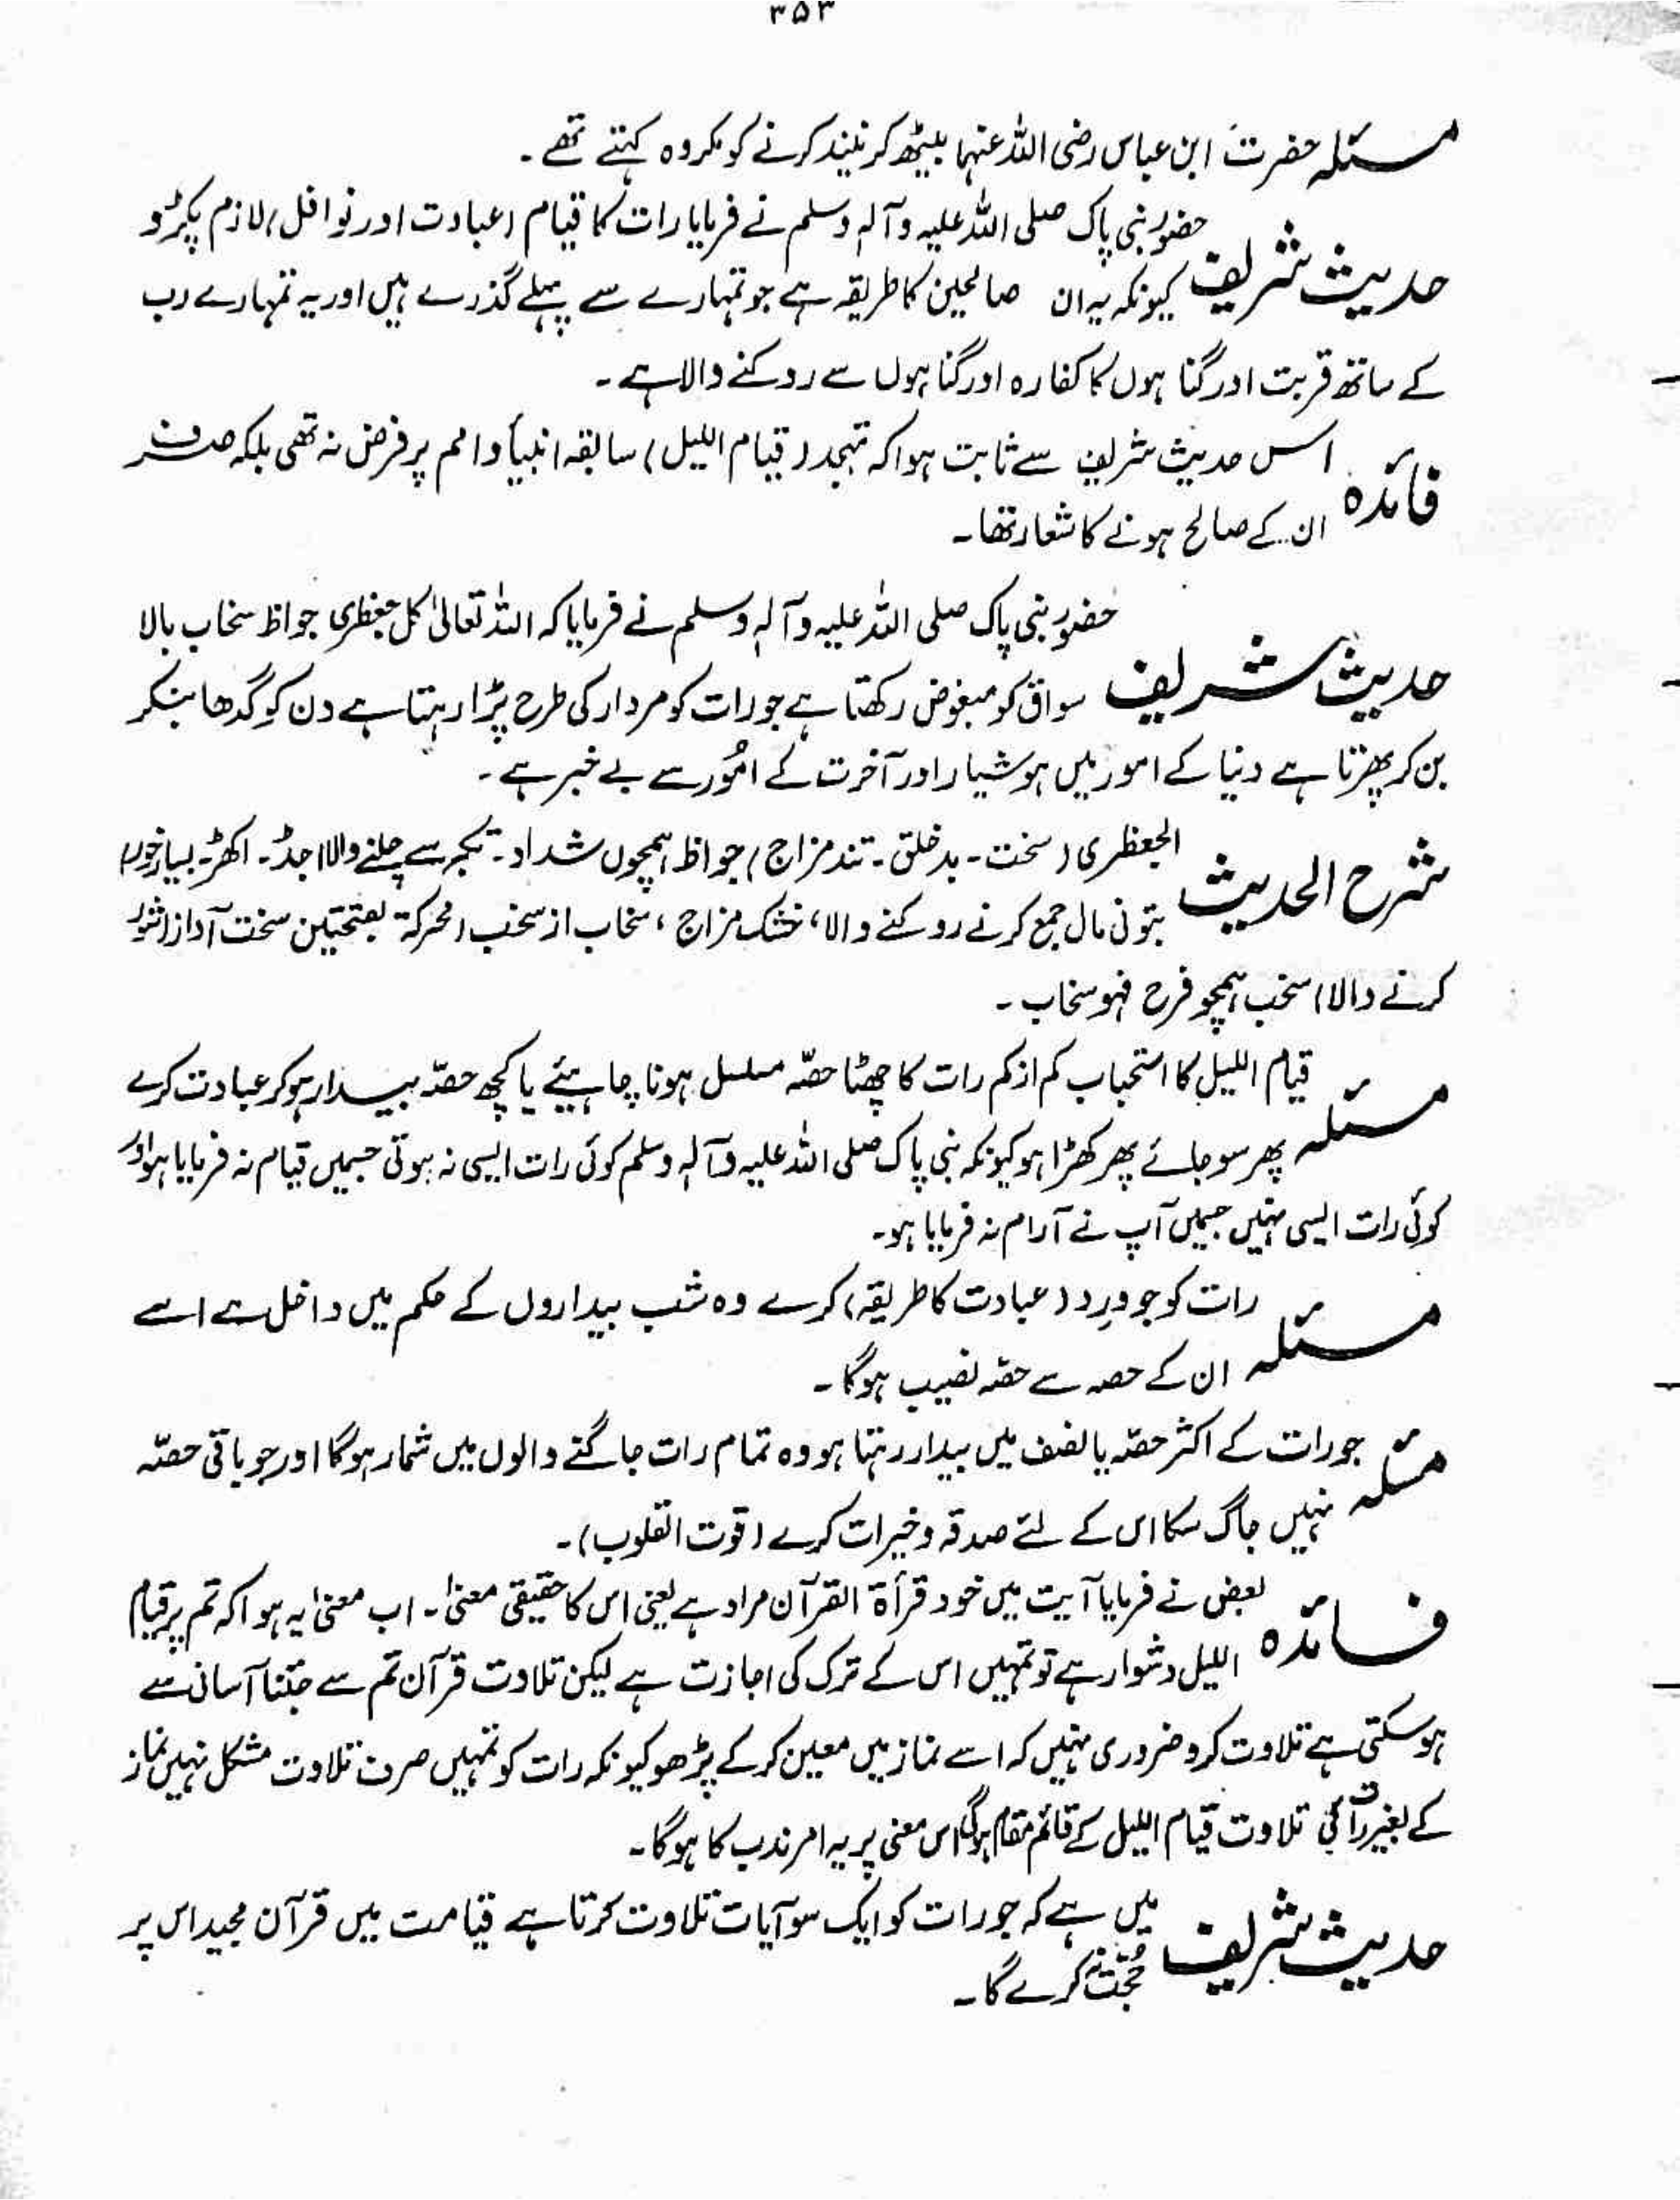 ۳۵۳
مسئلہ حضرت ابن عباس رضی اللہ عنہما بیٹھ کر نیند کرنے کو مکروہ کہتے تھے۔
حضور نبی پاک صلی اللہ علیہ وآلہٖ وسلم نے فرمایا رات کا قیام (عبادت اور نوافل) لازم پکڑو
حدیث شریف کیونکہ یہ ان صالحین کا طریقہ ہے جو تمہارے سے پہلے گذرے ہیں اور یہ تمہارے رب
کے ساتھ قربت اور گناہوں کا کفارہ اور گناہوں سے روکنے والا ہے۔
اس حدیث شریف سے ثابت ہوا کہ تہجد (قیام اللیل) سابقہ انبیأ و امم پر فرض نہ تھی بلکہ صرف
فائدہ ان کے صالح ہونے کا شعار تھا۔
حضور نبی پاک صلی اللہ علیہ وآلہٖ وسلم نے فرمایا کہ اللہ تعالیٰ کل جعظری جواظ سخاب بالا
حدیث شریف سواق کو مبغوض رکھتا ہے جو رات کو مردار کی طرح پڑا رہتا ہے دن کو گدھا بنکر
بن کر پھرتا ہے دنیا کے امور میں ہوشیار اور آخرت کے امُور سے بے خبر ہے۔
الجعظری (سخت۔ بدخلق۔ تند مزاج) جواظ ہمچوں شداد۔ تکبر سے چلنے والا اجڈ۔ اکھڑ۔ بسیار خور،
شرح الحدیث بتونی مال جمع کرنے روکنے والا، خشک مزاج، سخاب از سخب (محرکۃ بفتحتین سخت آواز (شور
کرنے والا) سخب ہمچو فرح فہو سخاب۔
قیام اللیل کا استحباب کم از کم رات کا چھٹا حصّہ مسلسل ہونا چاہیئے یا کچھ حصّہ بیدار ہو کر عبادت کرے
مسئلہ پھر سو جائے پھر کھڑا ہو کیونکہ نبی پاک صلی اللہ علیہ وآلہٖ وسلم کوئی رات ایسی نہ ہوتی جسمیں قیام نہ فرمایا ہو اور
کوئی رات ایسی نہیں جسمیں آپ نے آرام نہ فرمایا ہو۔
رات کو جو وِرد (عبادت کا طریقہ) کرے وہ شب بیداروں کے حکم میں داخل ہے اسے
مسئلہ ان کے حصہ سے حصّہ نصیب ہوگا۔
جو رات کے اکثر حصّہ یا نصف میں بیدار رہتا ہو وہ تمام رات جاگنے والوں میں شمار ہوگا اور جو باقی حصّہ
مسئلہ نہیں جاگ سکا اس کے لئے صدقہ و خیرات کرے (قوت القلوب)۔
بعض نے فرمایا آیت میں خود قرأۃ القرآن مراد ہے یعنی اس کا حقیقی معنیٰ۔ اب معنیٰ یہ ہوا کہ تم پر قیام
فائدہ اللیل دشوار ہے تو تمہیں اس کے ترک کی اجازت ہے لیکن تلاوت قرآن تم سے جتنا آسانی سے
ہو سکتی ہے تلاوت کرو ضروری نہیں کہ اسے نماز میں معین کر کے پڑھو کیونکہ رات کو تمہیں صرف تلاوت مشکل نہیں نماز
کے بغیر رات کی تلاوت قیام اللیل کے قائم مقام ہوگی اس معنی پر یہ امر ندب کا ہوگا۔
میں ہے کہ جو رات کو ایک سو آیات تلاوت کرتا ہے قیامت میں قرآن مجید اس پر
حدیث شریف حُجّت نہ کرے گا۔